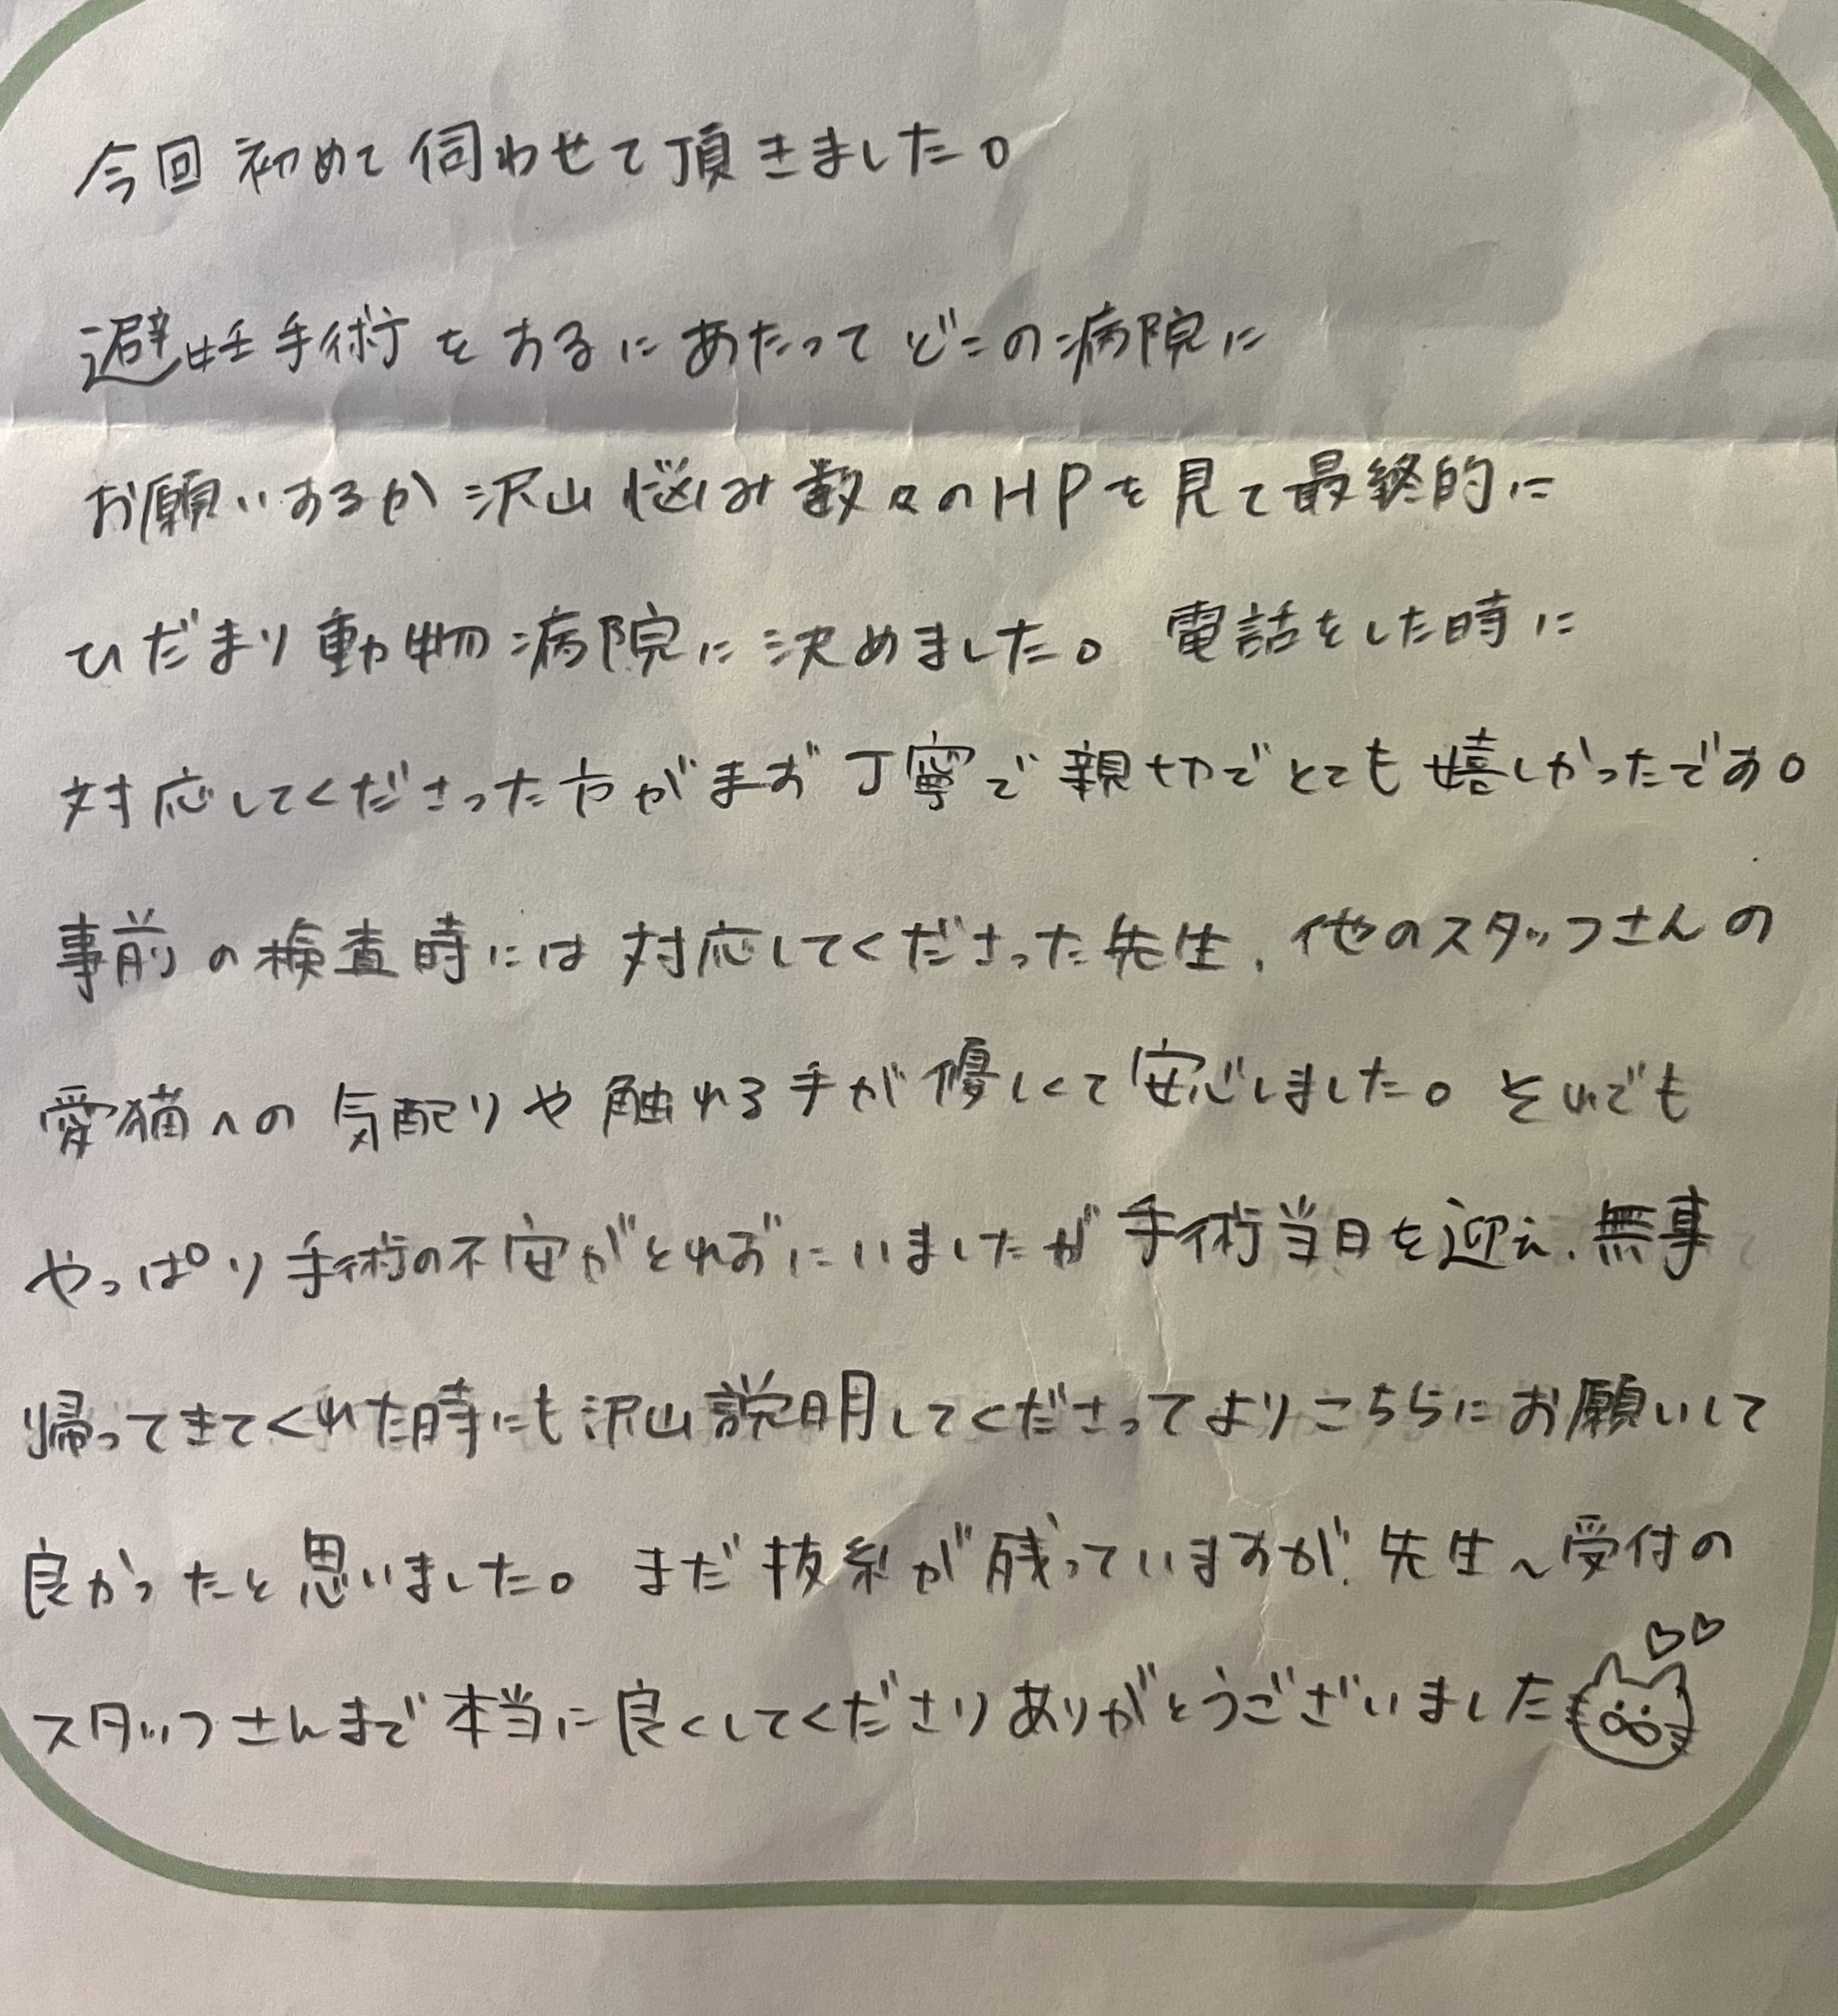 今回初めて伺わせて頂きました。
避妊手術をするにあたってどこの病院に
お願いするか沢山悩み数々のHPを見て最終的に
ひだまり動物病院に決めました。電話をした時に
対応してくださった方がまず丁寧で親切でとても嬉しかったです。
事前の検査時には対応してくださった先生、他のスタッフさんの
愛猫への気配りや触れる手が優しくて安心しました。それでも
やっぱり手術の不安がとれずにいましたが手術当日を迎え、無事
帰ってきてくれた時にも沢山説明してくださってよりこちらにお願いして
良かったと思いました。まだ抜糸が残っていますが、先生〜受付の
スタッフさんまで本当に良くしてくださりありがとうございました